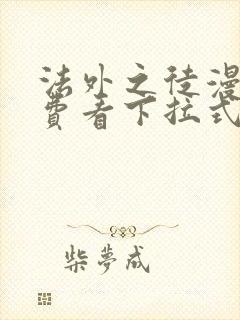 法外之徒漫
费看下拉式
柴梦成